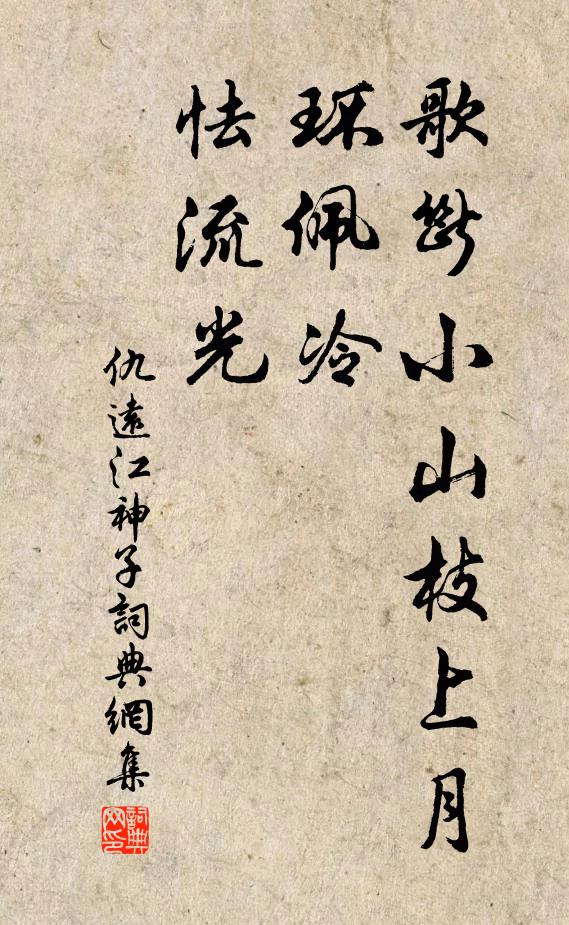 歌斷小山枝上月
環佩冷
怯流光
仇遠江神子詞典網集
詞典网印